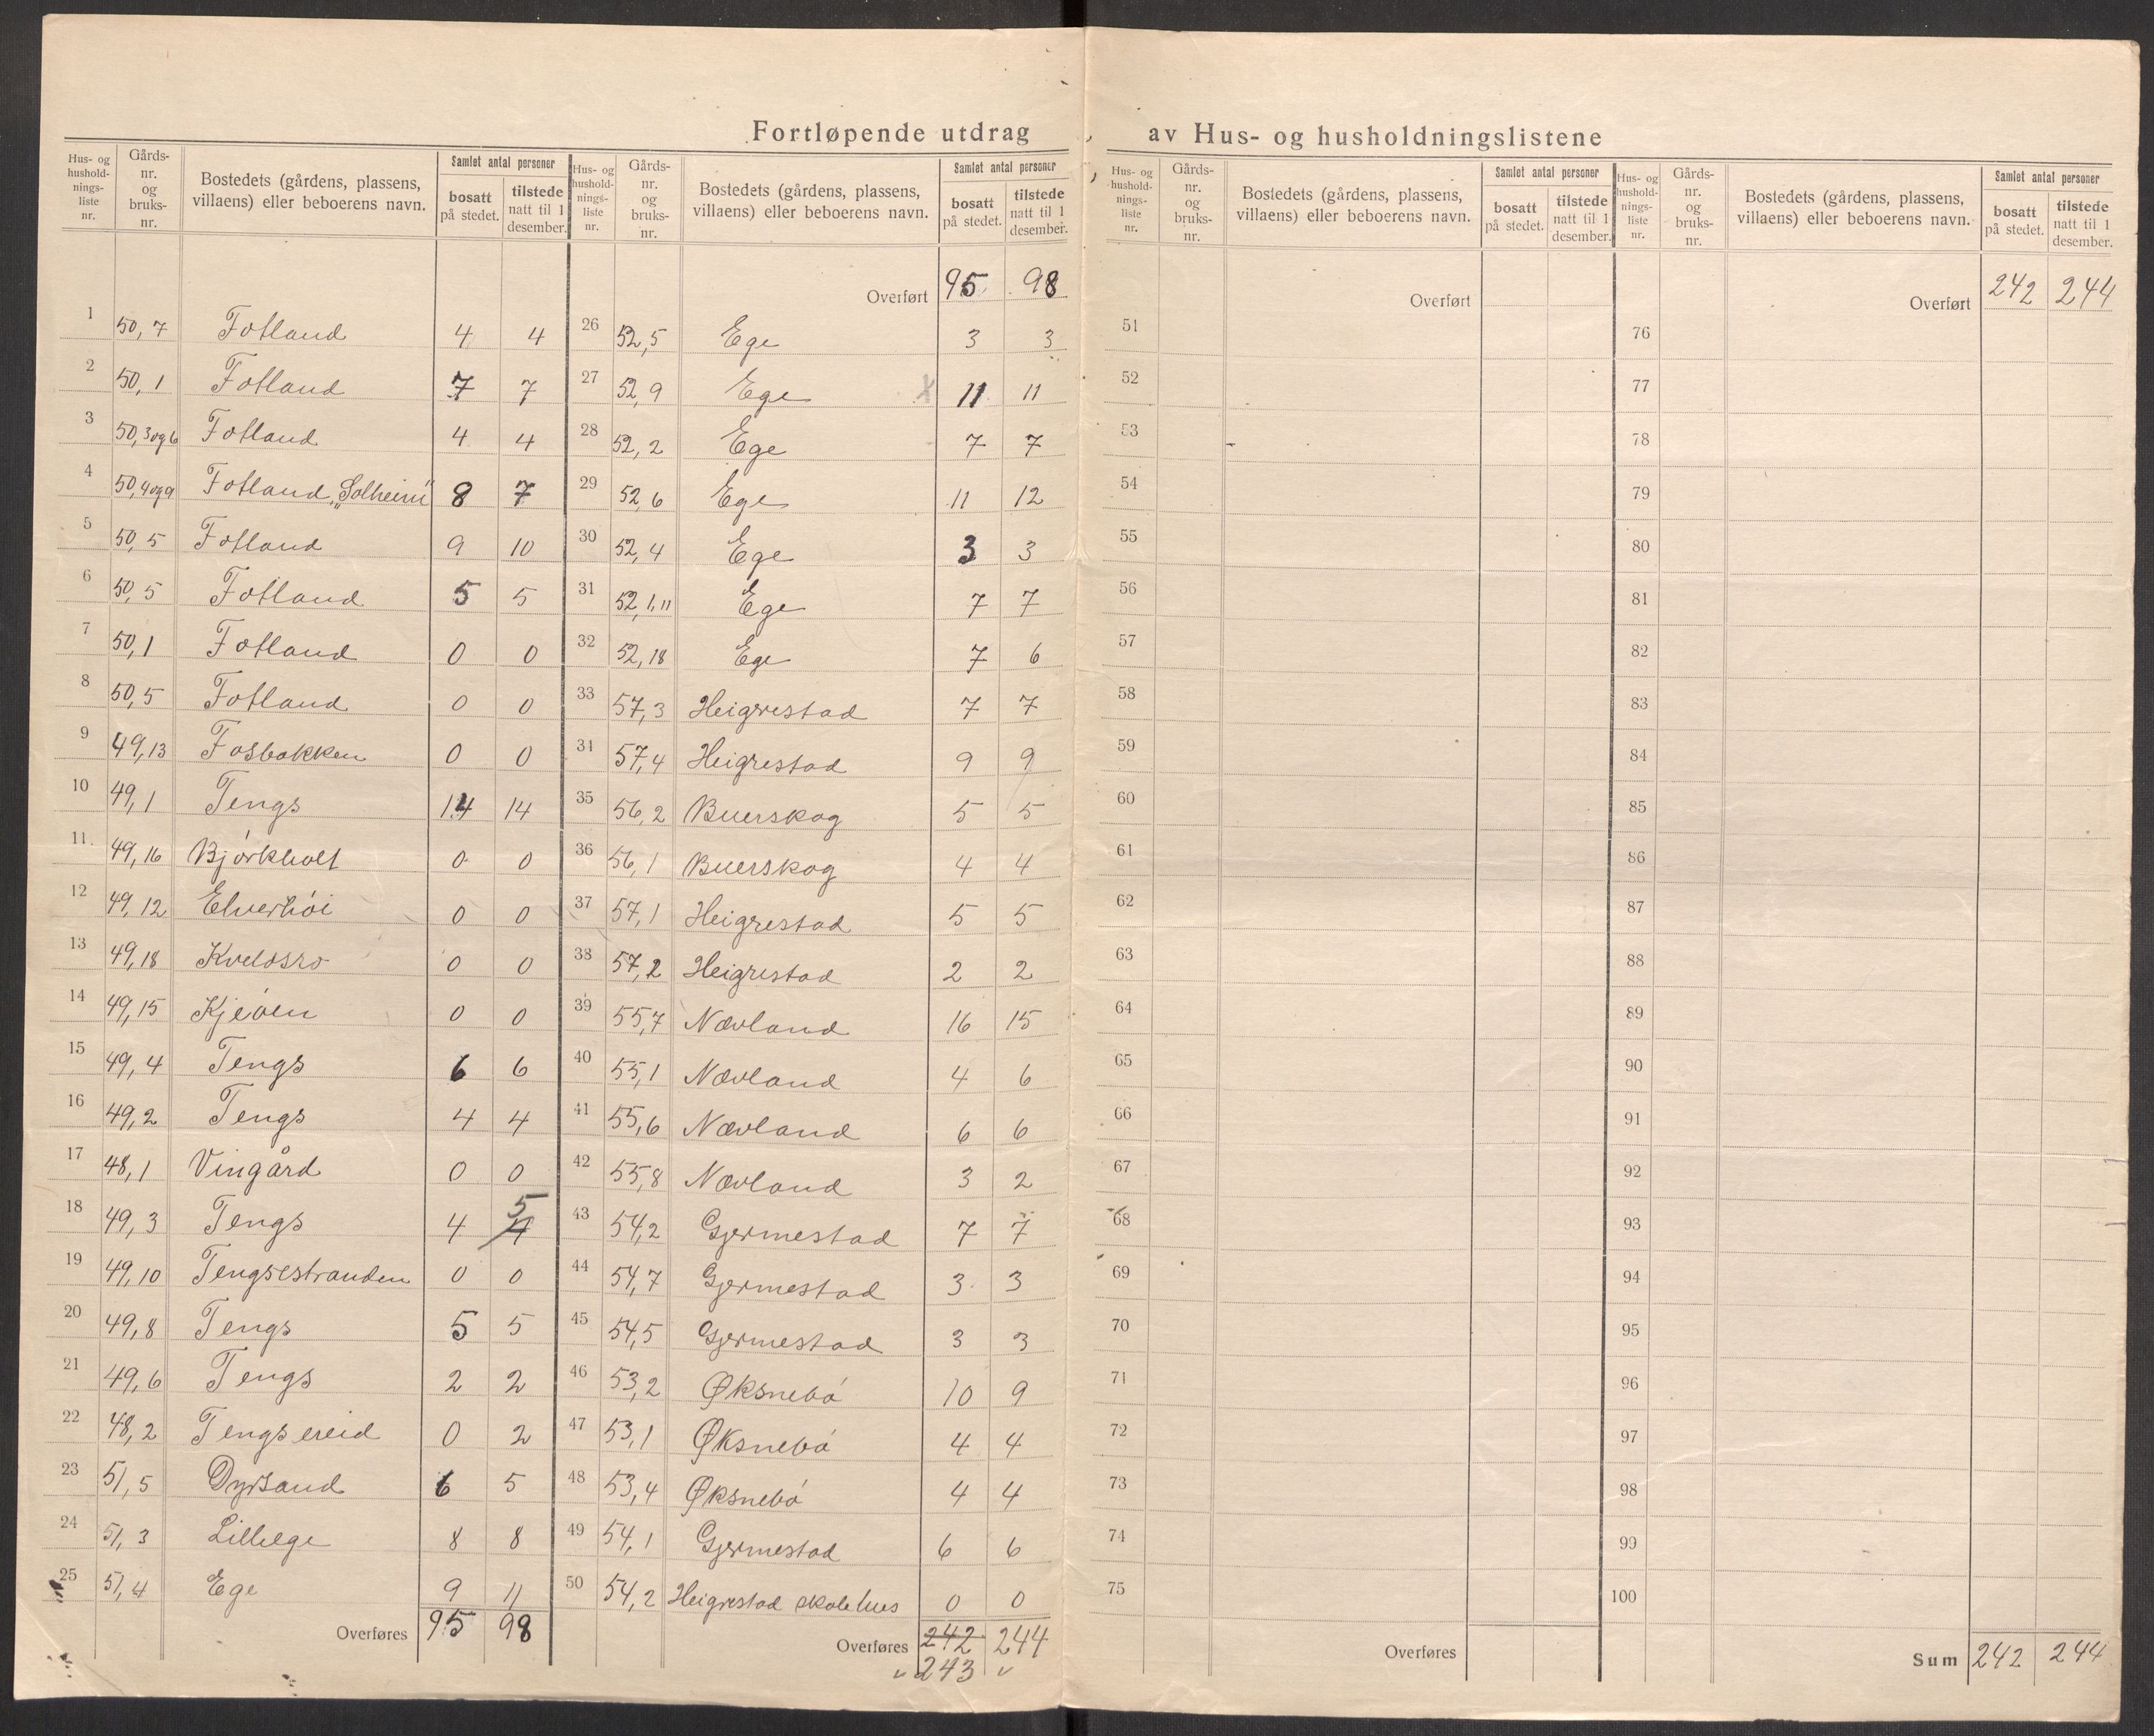 Fortløpende utdrag av Hus- og husholdningslistene
Hus- og hushold-nings-liste nr. | Gårds-nr. og bruks-nr. | Bostedets (gårdens, plassens, villaens) eller beboerens navn. | Samlet antal personer | bosatt på stedet. | tilstede natt til 1 desember.
1 50,7 Fotland 4 4
2 50,1 Fotland 7 7
3 50,3og6 Fotland 4 4
4 50,4og9 Fotland „Solheim" 8 7
5 50,5 Fotland 9 10
6 50,5 Fotland 5 5
7 50,1 Fotland 0 0
8 50,5 Fotland 0 0
9 49,13 Fosbakken 0 0
10 49,1 Tengs 14 14
11 49,16 Bjørkholt 0 0
12 49,12 Elverhöi 0 0
13 49,18 Kveldsro 0 0
14 49,15 0 0
15 49,4 Tengs 6 6
16 49,2 Tengs 4 4
17 48,1 Vingård 0 0
18 49,3 Tengs 4 4 5
19 49,10 Tengsestranden 0 0
20 49,8 Tengs 5 5
21 49,6 Tengs 2 2
22 48,2 Tengsereid 0 2
23 51,5 Dyrsand 6 5
24 51,3 Lillege 8 8
25 51,4 Ege 9 11
Overføres 95 98
Hus- og hushold-nings-liste nr. | Gårds-nr. og bruks-nr. | Bostedets (gårdens, plassens, villaens) eller beboerens navn. | Samlet antal personer | bosatt på stedet. | tilstede natt til 1 desember.
Overført 95 98
26 52,5 Ege 3 3
27 52,9 Ege x 11 11
28 52,2 Ege 7 7
29 52,6 Ege 11 12
30 52,4 Ege 3 3
31 52,1,11 Ege 7 7
32 52,18 Ege 7 6
33 57,3 Heigrestad 7 7
34 57,4 Heigrestad 9 9
35 56,2 Buerskog 5 5
36 56,1 Buerskog 4 4
37 57,1 Heigrestad 5 5
38 57,2 Heigrestad 2 2
39 55,7 Nævland 16 15
40 55,1 Nævland 4 6
41 55,6 Nævland 6 6
42 55,8 Nævland 3 2
43 54,2 Gjermestad 7 7
44 54,7 Gjermestad 3 3
45 54,5 Gjermestad 3 3
46 53,2 Øksnebö 10 9
47 53,1 Øksnebö 4 4
48 53,4 Øksnebö 4 4
49 54,1 Gjermestad 6 6
50 54,2 Heigrestad skolehus 0 0
Overføres 242 244
243
Hus- og hushold-nings-liste nr. | Gårds-nr. og bruks-nr. | Bostedets (gårdens, plassens, villaens) eller beboerens navn. | Samlet antal personer | bosatt på stedet. | tilstede natt til 1 desember.
Overført
51
52
53
54
55
56
57
58
59
60
61
62
63
64
65
66
67
68
69
70
71
72
73
74
75
Overføres
Hus- og hushold-nings-liste nr. | Gårds-nr. og bruks-nr. | Bostedets (gårdens, plassens, villaens) eller beboerens navn. | Samlet antal personer | bosatt på stedet. | tilstede natt til 1 desember.
Overført 242 244
76
77
78
79
80
81
82
83
84
85
86
87
88
89
90
91
92
93
94
95
96
97
98
99
100
Sum 242 244